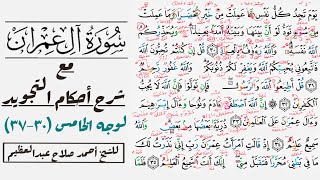 سُورَةُ آلِ عِمْرَان
مع
شرح أحكام التجويد
لوجه الخامس (٣٠-٣٧)
للشيخ أحمد صلاح عبدالعظيم
يَوْمَ تَجِدُ كُلُّ نَفْسٍ مَّا عَمِلَتْ مِنْ خَيْرٍ مُّحْضَرًا وَمَا عَمِلَتْ
مِن سُوٓءٍ تَوَدُّ لَوْ أَنَّ بَيْنَهَا وَبَيْنَهُۥٓ أَمَدًۢا بَعِيدًا وَيُحَذِّرُكُمُ
ٱللَّهُ نَفْسَهُۥ وَٱللَّهُ رَءُوفٌۢ بِٱلْعِبَادِ ٣٠ قُلْ إِن كُنتُمْ تُحِبُّونَ
ٱللَّهَ فَٱتَّبِعُونِى يُحْبِبْكُمُ ٱللَّهُ وَيَغْفِرْ لَكُمْ ذُنُوبَكُمْ وَٱللَّهُ غَفُورٌ
رَّحِيمٌ ٣١ قُلْ أَطِيعُوا۟ ٱللَّهَ وَٱلرَّسُولَ فَإِن تَوَلَّوْا۟ فَإِنَّ ٱللَّهَ لَا يُحِبُّ
ٱلْكَٰفِرِينَ ٣٢ إِنَّ ٱللَّهَ ٱصْطَفَىٰٓ ءَادَمَ وَنُوحًا وَءَالَ إِبْرَٰهِيمَ
وَءَالَ عِمْرَٰنَ عَلَى ٱلْعَٰلَمِينَ ٣٣ ذُرِّيَّةًۢ بَعْضُهَا مِنۢ بَعْضٍ وَٱللَّهُ
سَمِيعٌ عَلِيمٌ ٣٤ إِذْ قَالَتِ ٱمْرَأَتُ عِمْرَٰنَ رَبِّ إِنِّى نَذَرْتُ لَكَ
مَا فِى بَطْنِى مُحَرَّرًا فَتَقَبَّلْ مِنِّىٓ إِنَّكَ أَنتَ ٱلسَّمِيعُ ٱلْعَلِيمُ ٣٥